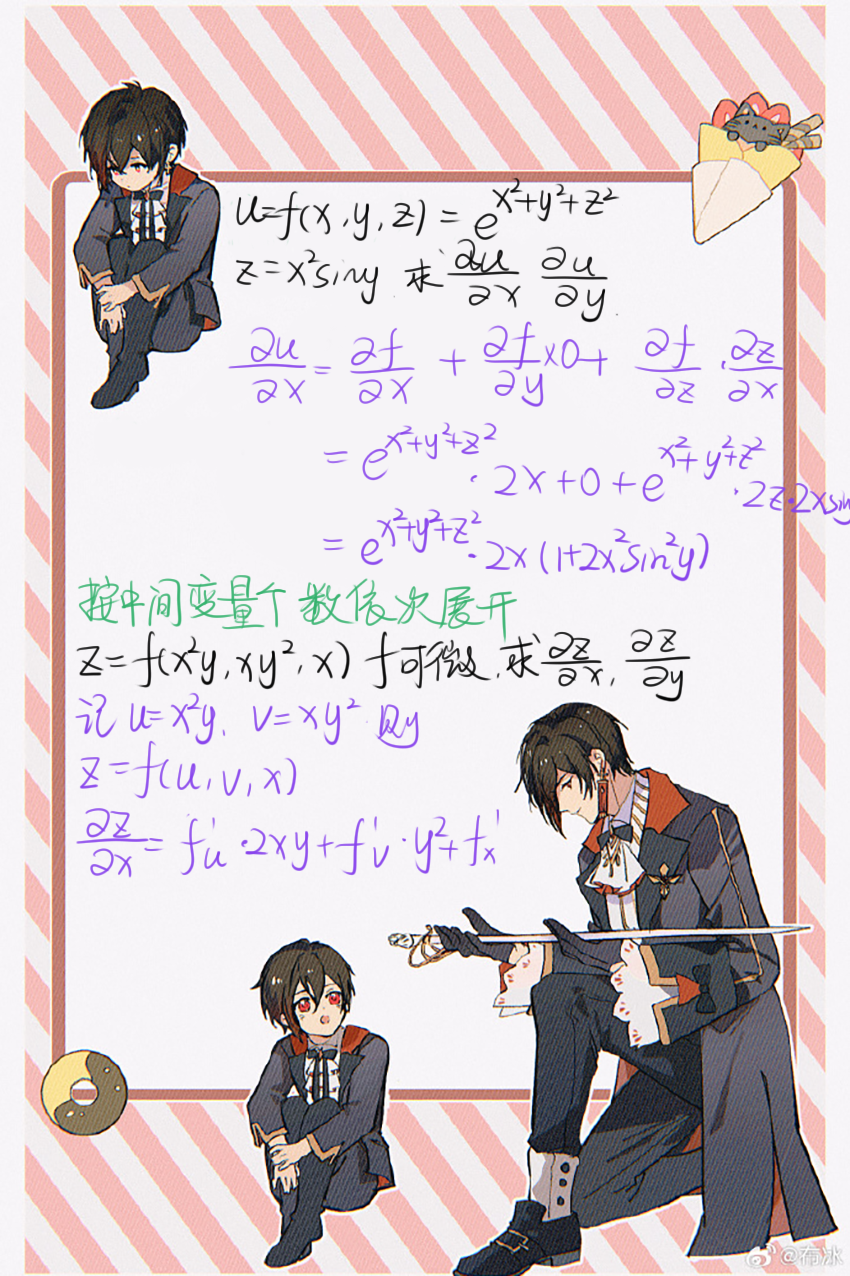 u=f(x,y,z)=e^{x²+y²+z²}
z=x²siny 求 ∂u/∂x ∂u/∂y
∂u/∂x = ∂f/∂x + ∂f/∂y×0+ ∂f/∂z · ∂z/∂x
= e^{x²+y²+z²} · 2x+0+e^{x²+y²+z²} · 2z·2xsiny
= e^{x²+y²+z²} · 2x(1+2x²sin²y)
按中间变量个数依次展开
z=f(x²y, xy², x) f可微,求 ∂z/∂x, ∂z/∂y
记 u=x²y, v=xy² 则
z=f(u,v,x)
∂z/∂x = f'u ·2xy+f'v ·y²+f'x
@布冰